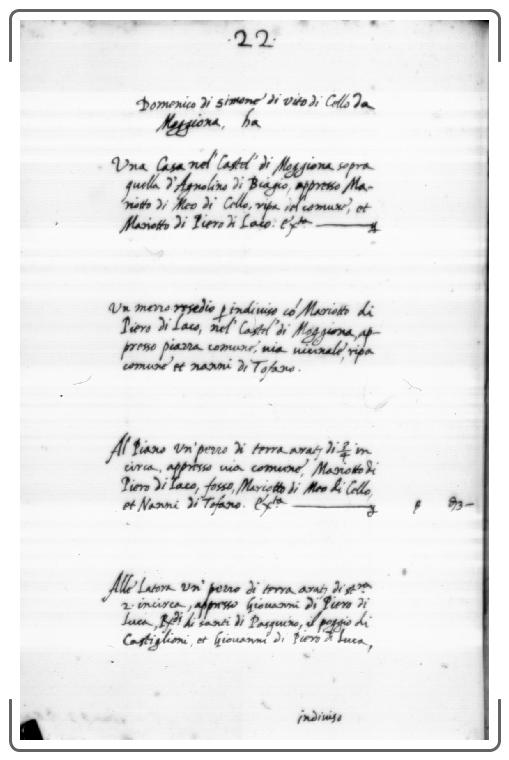 .22.
Domenico di Simone di Vito di Cello da
Moggiona, ha
Una Casa nel Castel' di Moggiona sopra
quella d'Agnolino di Biagio, appresso Ma-
riotto di Meo di Cello, ripa del comune, et
Mariotto di Piero di Laco. exta
Un mezzo resedio p indiviso co' Mariotto di
Piero di Laco, nel Castel' di Moggiona, ap-
presso piazza comune, via vicinale, ripa
comune et nanni di Tofano.
Al Piano un' pezzo di terra arat; di 3/4 in
circa, appresso via comune, Mariotto di
Piero di Laco, fosso, Mariotto di Meo di Cello,
et Nanni di Tofano. exta
Alle Latora un' pezzo di terra arat; di
2 incirca, appresso Giovanni di Piero di
Luca, Redi di santi di Pasquino, il poggio di
Castiglioni, et Giovanni di Piero di Luca,
indiviso